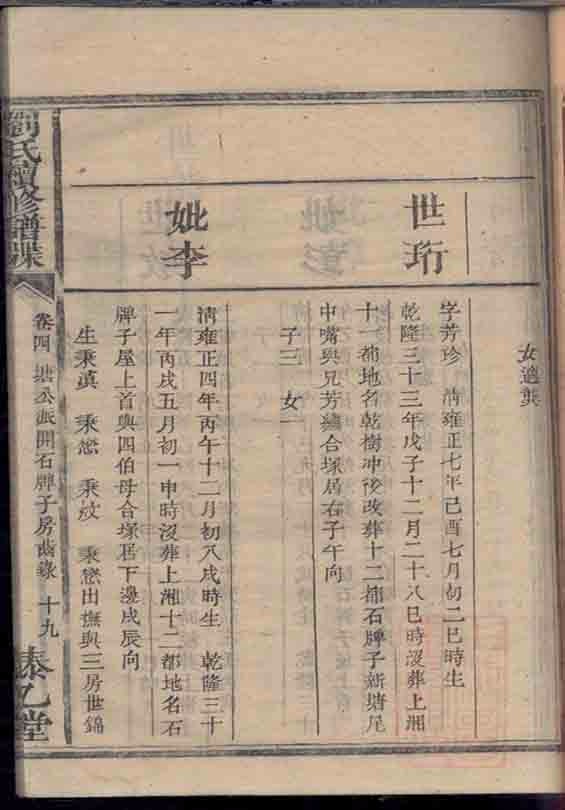 女適龔
世珩
字芳珍 清雍正七年己酉七月初二巳時生
乾隆三十三年戊子十二月二十八巳時沒葬上湘
十一都地名乾樹冲後改葬十二都石牌子新塘尾
中嘴與兄芳繡合塚居右子午向
子三 女一
妣李
清雍正四年丙午十二月初八戌時生 乾隆三十
一年丙戌五月初一申時沒葬上湘十二都地名石
牌子屋上首與四伯母合塚居下邊戌辰向
生秉 秉 秉 秉 出撫與三房世錦
劉氏續修譜牒
卷四 塘公派開石牌子房齒錄 十九
泰乙堂